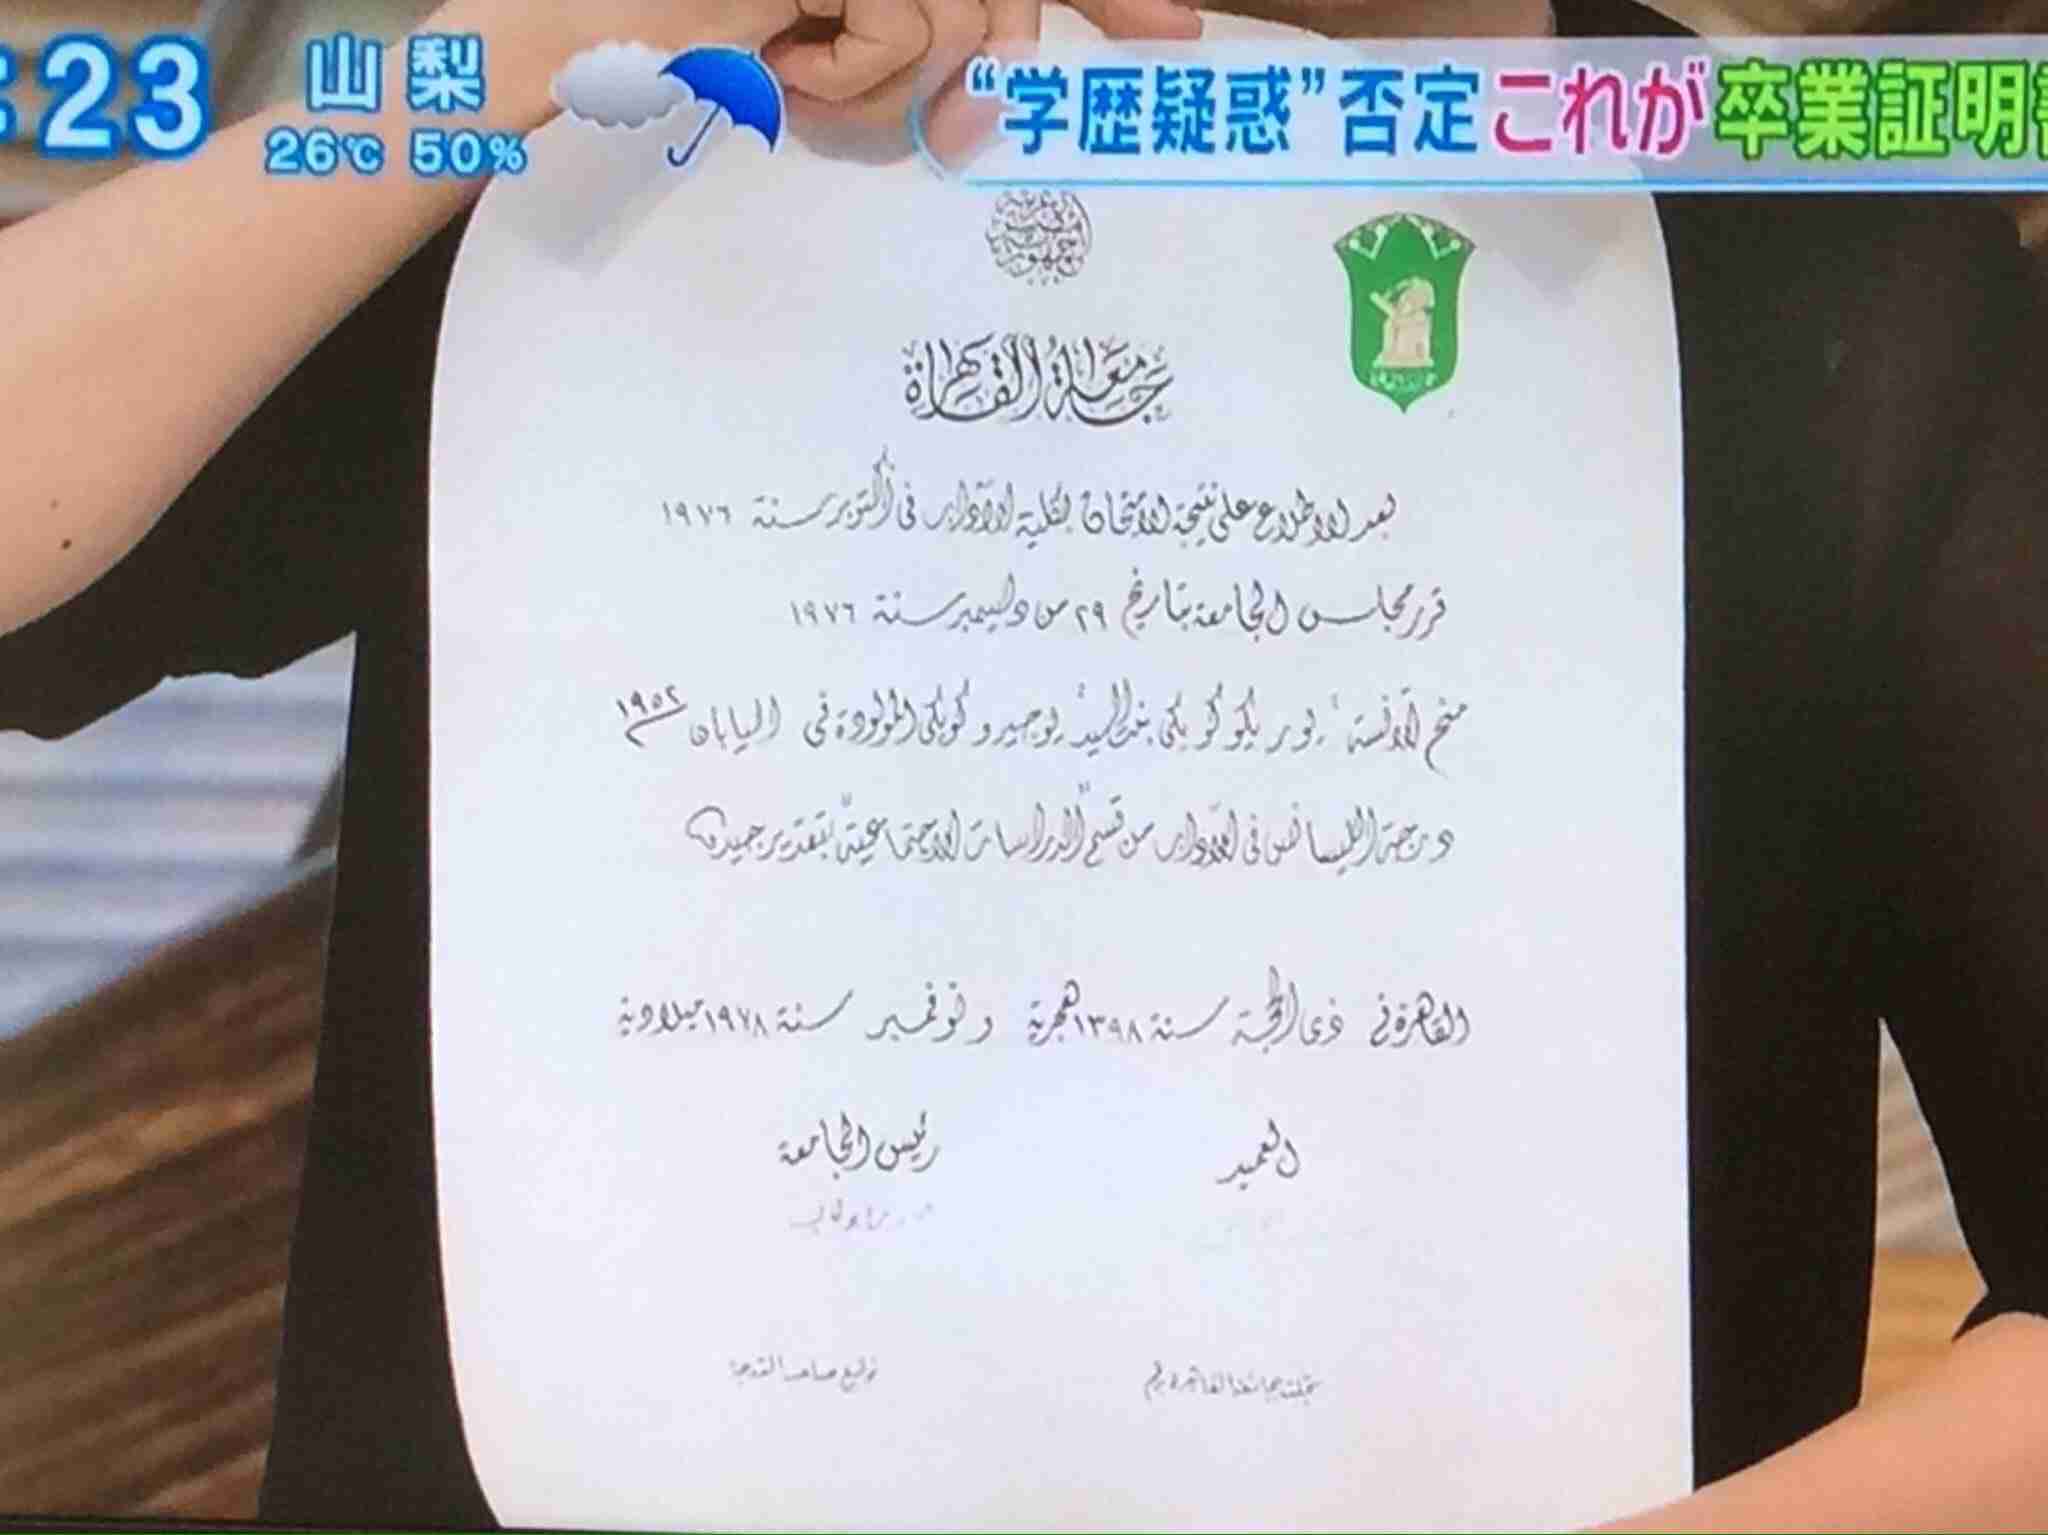 :23
山梨
26℃ 50%
“学歴疑惑”否定これが卒業証明書
جامعة القاهرة
بعد الاطلاع على نتيجة الامتحان لكلية الآداب فى أكتوبر سنة ١٩٧٦
قرر مجلس الجامعة بتاريخ ٢٩ من ديسمبر سنة ١٩٧٦
منح الآنسة / يوريكو كويكى بنت السيد / يوجيرو كويكى المولودة فى اليابان ١٩٥٢
درجة الليسانس فى الآداب من قسم الدراسات الاجتماعية بتقدير جيد
القاهرة فى ذى الحجة سنة ١٣٩٨ هجرية ونوفمبر سنة ١٩٧٨ ميلادية
العميد رئيس الجامعة